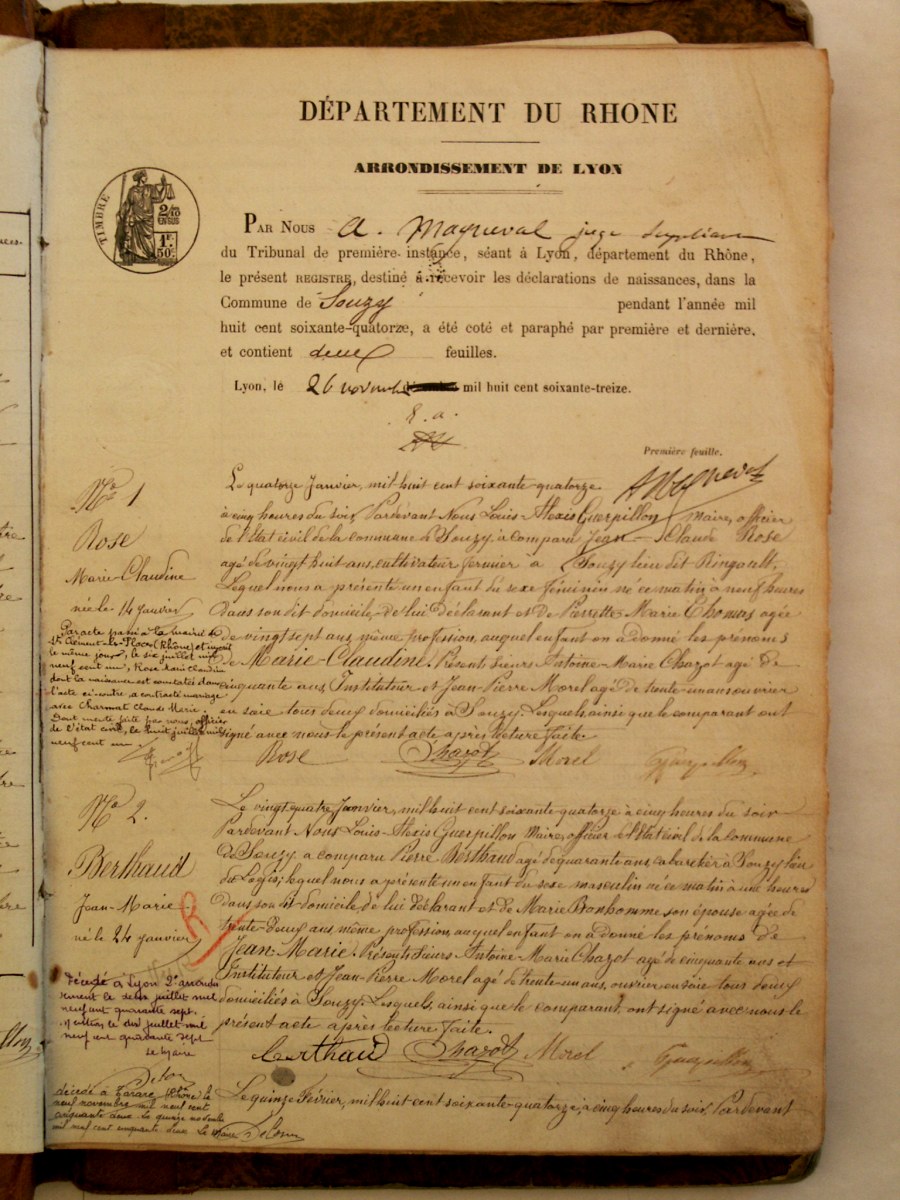 DÉPARTEMENT DU RHONE
ARRONDISSEMENT DE LYON
TIMBRE
2/10
EN SUS
1F.
50c.
PAR NOUS A. Mayneval juge suppléant
du Tribunal de première instance, séant à Lyon, département du Rhône,
le présent REGISTRE, destiné à recevoir les déclarations de naissances, dans la
Commune de Souzy pendant l'année mil
huit cent soixante-quatorze, a été coté et paraphé par première et dernière,
et contient deux feuilles.
Lyon, le 26 novembre mil huit cent soixante-treize.
Première feuille.
No 1
Rose
Marie-Claudine
née le 14 janvier
Par acte passé à la mairie de
St Clément-les-Places (Rhône) et inscrit
le même jour, le six juillet mil
neuf cent un, Rose Marie Claudine
dont la naissance est constatée dans
l'acte ci-contre a contracté mariage
avec Charmat Claude Marie.
Dont mention faite par nous, officier
de l'état civil, le huit juillet mil
neuf cent un
Le quatorze Janvier, mil huit cent soixante-quatorze
à cinq heures du soir, Pardevant Nous Louis-Alexis Guerpillon Maire, officier
de l'état civil de la commune de Souzy, a comparu Jean-Claude Rose
agé de vingt huit ans, cultivateur fermier à Souzy lieu dit Ringault,
Lequel nous a présenté un enfant du sexe féminin né ce matin à neuf heures
dans son dit domicile, de lui déclarant et de Pierrette Marie Thomas agée
de vingt sept ans, même profession, auquel enfant on a donné les prénoms
de Marie-Claudine. Présents Sieurs Antoine-Marie Chazot agé de
cinquante ans Instituteur et Jean-Pierre Morel agé de trente un ans ouvrier
en soie tous deux domiciliés à Souzy. Lesquels, ainsi que le comparant ont
signé avec nous le présent acte après lecture faite.
Rose Chazot Morel Guerpillon
No 2.
Berthaud
Jean-Marie
né le 24 janvier
Décédé à Lyon 2e arrondis
sement le seize juillet mil
neuf cent quarante sept.
juillet mil
neuf cent quarante sept
Le Maire
décédé à Tarare Rhône le
neuf novembre mil neuf cent
cinquante deux. Le quinze novembre
mil neuf cent cinquante deux Le Maire
Le vingt quatre Janvier, mil huit cent soixante-quatorze à cinq heures du soir
Pardevant Nous Louis-Alexis Guerpillon Maire, officier de l'état civil de la commune
de Souzy, a comparu Pierre Berthaud agé de quarante ans, cabaretier à Souzy lieu
du Logis; lequel nous a présenté un enfant du sexe masculin né ce matin à une heure
dans son dit domicile, de lui déclarant et de Marie Bonhomme son épouse agée de
trente-deux ans, même profession, auquel enfant on a donné les prénoms de
Jean Marie. Présents Sieurs Antoine Marie Chazot agé de cinquante ans et
Instituteur et Jean-Pierre Morel agé de trente un ans, ouvrier en soie tous deux
domiciliés à Souzy. Lesquels, ainsi que le comparant ont signé avec nous le
présent acte après lecture faite.
Berthaud Chazot Morel Guerpillon
Le quinze Février, mil huit cent soixante-quatorze, à cinq heures du soir, Pardevant